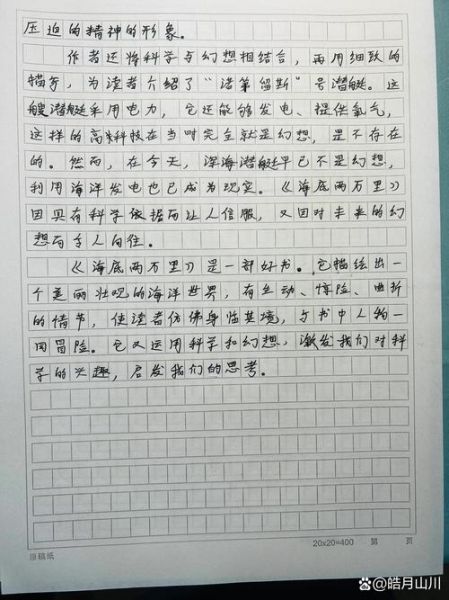 压迫的精神的形象。
作者还将科学与幻想相结合,再用细致的
描写,为读者介绍了“诺第留斯”号潜艇。这
艘潜艇采用电力,它还能够发电、提供氧气,
这样的高科技在当时完全就是幻想,是不存在
的。然而,在今天,深海潜艇早已不是幻想,
利用海洋发电也已成为现实。《海底两万里》
因具有科学依据而让人信服,又因对未来的幻
想而令人向往。
《海底两万里》是一部好书。它描绘出一
个美丽壮观的海洋世界,有生动、惊险、曲折
的情节,使读者仿佛身临其境,与书中人物一
同冒险。它又运用科学和幻想,激发我们对科
学的兴趣,启发我们的思考。
20×20=400 第 页
原稿纸
皓月山川